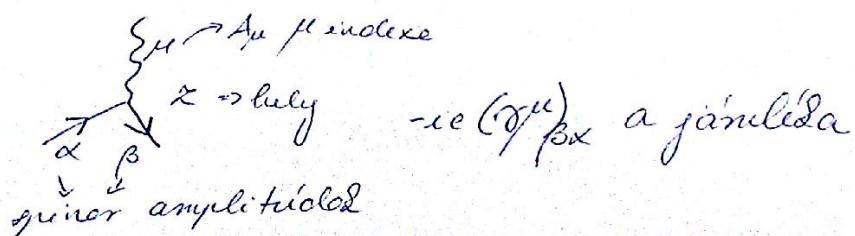 μ → Aμ μ indexe
z → hely
-ie (γ^μ)_βα a járuléka
α β
spinor amplitúdók